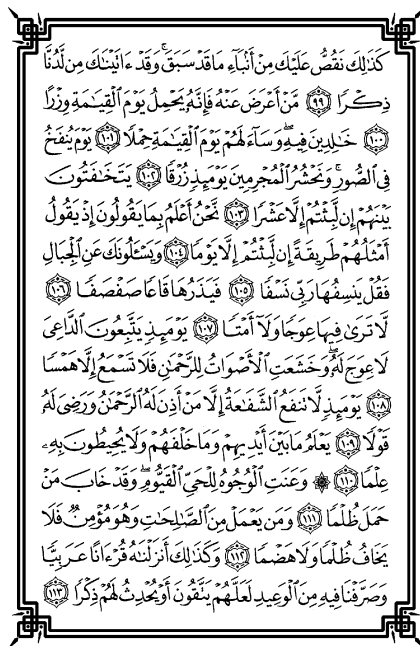 كَذَٰلِكَ نَقُصُّ عَلَيْكَ مِنْ أَنۢبَآءِ مَا قَدْ سَبَقَۚ وَقَدْ ءَاتَيْنَٰكَ مِن لَّدُنَّا
ذِكْرًا ٩٩ مَّنْ أَعْرَضَ عَنْهُ فَإِنَّهُۥ يَحْمِلُ يَوْمَ ٱلْقِيَٰمَةِ وِزْرًا
١٠٠ خَٰلِدِينَ فِيهِۖ وَسَآءَ لَهُمْ يَوْمَ ٱلْقِيَٰمَةِ حِمْلًا ١٠١ يَوْمَ يُنفَخُ
فِى ٱلصُّورِۚ وَنَحْشُرُ ٱلْمُجْرِمِينَ يَوْمَئِذٍ زُرْقًا ١٠٢ يَتَخَٰفَتُونَ
بَيْنَهُمْ إِن لَّبِثْتُمْ إِلَّا عَشْرًا ١٠٣ نَّحْنُ أَعْلَمُ بِمَا يَقُولُونَ إِذْ يَقُولُ
أَمْثَلُهُمْ طَرِيقَةً إِن لَّبِثْتُمْ إِلَّا يَوْمًا ١٠٤ وَيَسْـَٔلُونَكَ عَنِ ٱلْجِبَالِ
فَقُلْ يَنسِفُهَا رَبِّى نَسْفًا ١٠٥ فَيَذَرُهَا قَاعًا صَفْصَفًا ١٠٦
لَّا تَرَىٰ فِيهَا عِوَجًا وَلَآ أَمْتًا ١٠٧ يَوْمَئِذٍ يَتَّبِعُونَ ٱلدَّاعِىَ
لَا عِوَجَ لَهُۥۖ وَخَشَعَتِ ٱلْأَصْوَاتُ لِلرَّحْمَٰنِ فَلَا تَسْمَعُ إِلَّا هَمْسًا
١٠٨ يَوْمَئِذٍ لَّا تَنفَعُ ٱلشَّفَٰعَةُ إِلَّا مَنْ أَذِنَ لَهُ ٱلرَّحْمَٰنُ وَرَضِىَ لَهُۥ
قَوْلًا ١٠٩ يَعْلَمُ مَا بَيْنَ أَيْدِيهِمْ وَمَا خَلْفَهُمْ وَلَا يُحِيطُونَ بِهِۦ
عِلْمًا ١١٠ ۞ وَعَنَتِ ٱلْوُجُوهُ لِلْحَىِّ ٱلْقَيُّومِۖ وَقَدْ خَابَ مَنْ
حَمَلَ ظُلْمًا ١١١ وَمَن يَعْمَلْ مِنَ ٱلصَّٰلِحَٰتِ وَهُوَ مُؤْمِنٌ فَلَا
يَخَافُ ظُلْمًا وَلَا هَضْمًا ١١٢ وَكَذَٰلِكَ أَنزَلْنَٰهُ قُرْءَانًا عَرَبِيًّا
وَصَرَّفْنَا فِيهِ مِنَ ٱلْوَعِيدِ لَعَلَّهُمْ يَتَّقُونَ أَوْ يُحْدِثُ لَهُمْ ذِكْرًا ١١٣